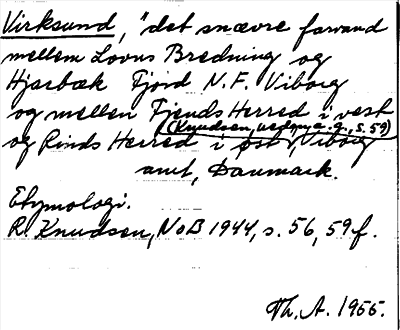 Virksund, "det snævre farvand
mellem Lovns Bredning og
Hjarbæk Fjord N.F. Viborg
og mellem Fjends Herred i vest
(Knudsen, a.a., s. 59)
og Rinds Herred i øst", Viborg
amt, Danmark.
Etymologi.
R. Knudsen, NoB 1944, s. 56, 59 f.
Th. A. 1955.